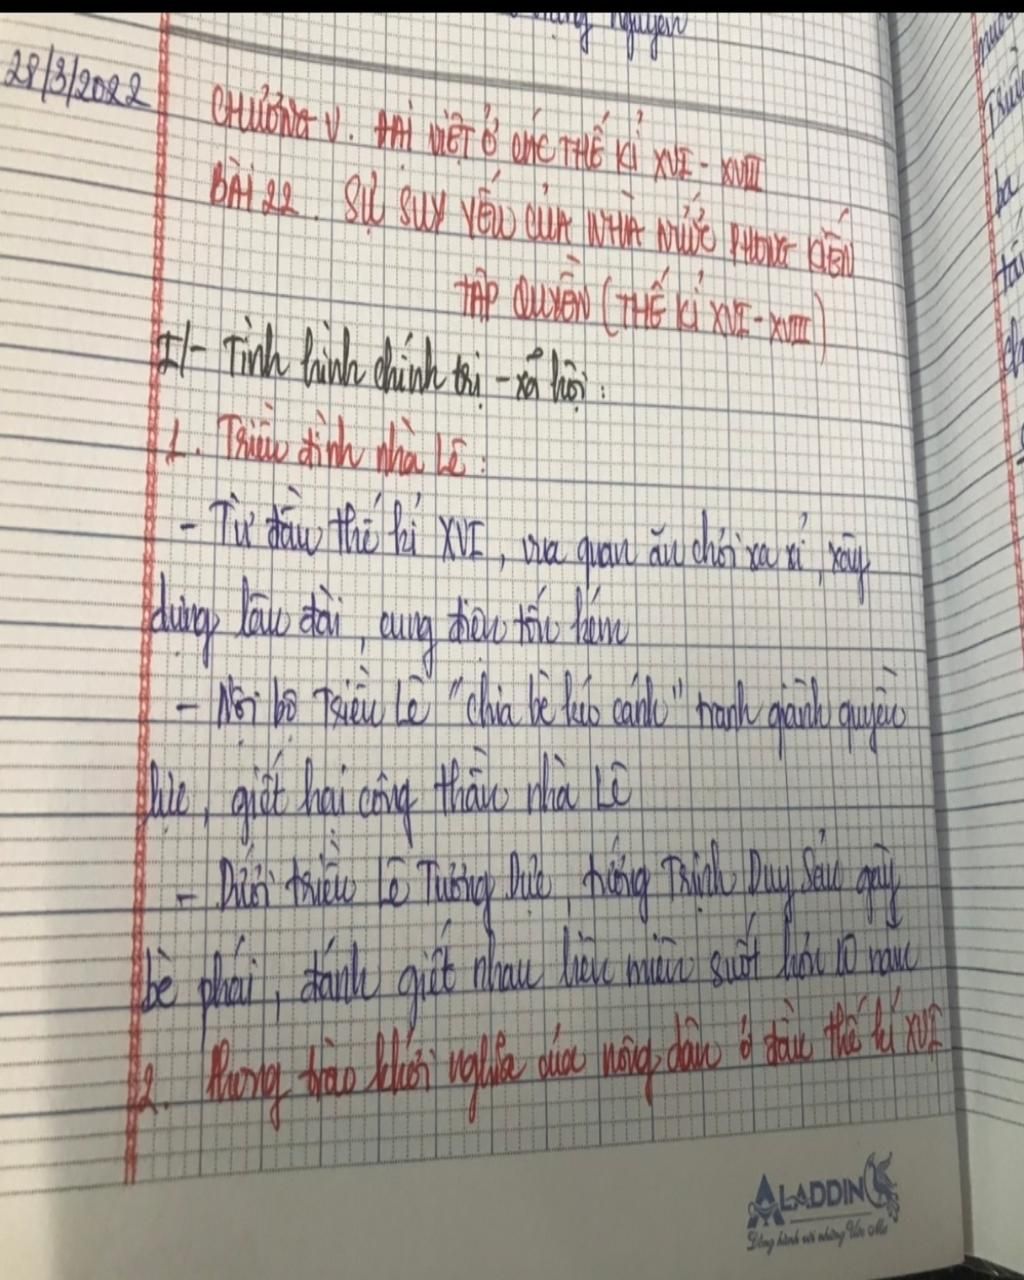 28/3/2022
CHƯƠNG V. ĐẠI VIỆT Ở CÁC THẾ KỈ XVI - XVIII
BÀI 22. SỰ SUY YẾU CỦA NHÀ NƯỚC PHONG KIẾN
TẬP QUYỀN (THẾ KỈ XVI - XVIII)
I/- Tình hình chính trị - xã hội:
1. Triều đình nhà Lê:
- Từ đầu thế kỉ XVI, vua quan ăn chơi xa xỉ, xây
dựng lâu đài, cung điện tốn kém
- Nội bộ Triều Lê "chia bè kéo cánh" tranh giành quyền
lực, giết hại công thần nhà Lê
- Dưới triều Lê Tương Dực, tướng Trịnh Duy Sản gây
bè phái, đánh giết nhau liên miên suốt hơn 10 năm
2. Phong trào khởi nghĩa của nông dân ở đầu thế kỉ XVI
ALADDIN
Đồng hành với những Ước Mơ